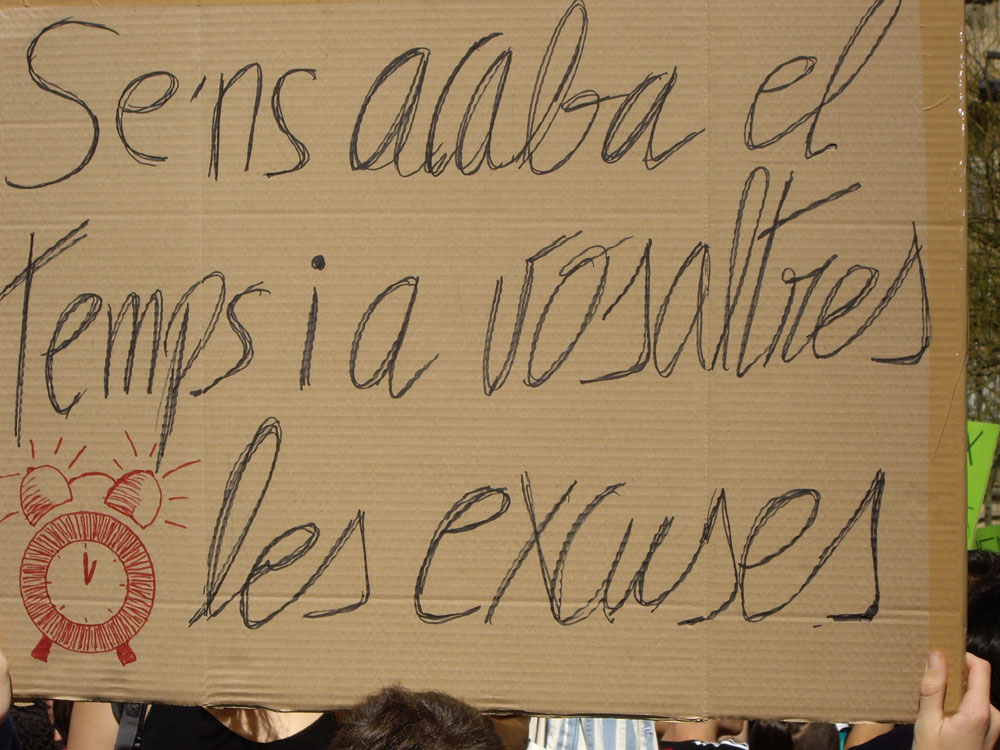 Se'ns acaba el
temps i a vosaltres
les excuses